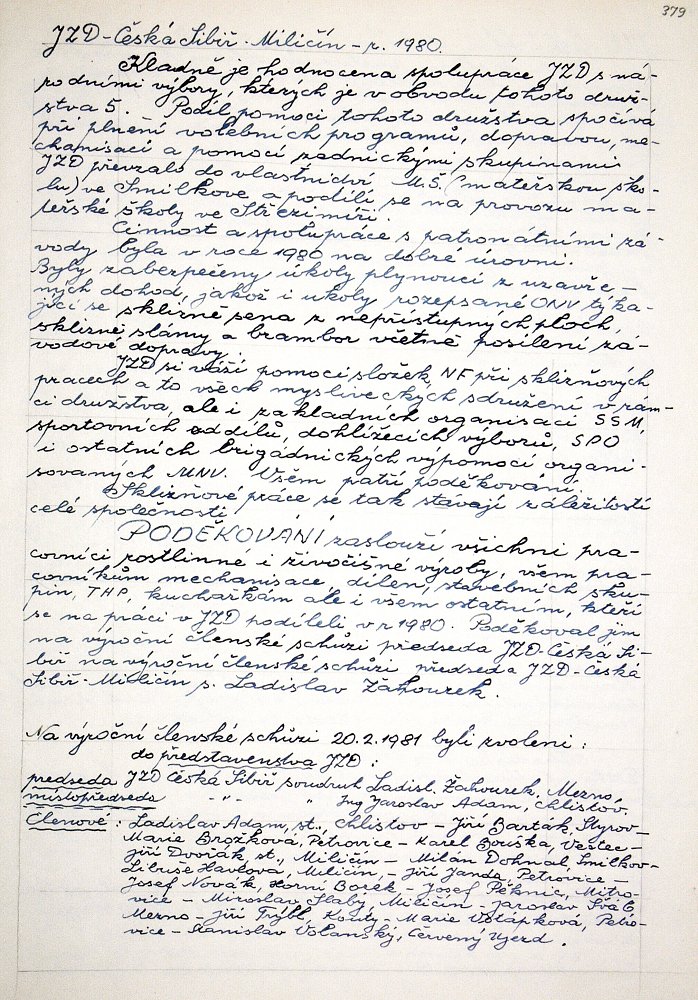 379
JZD-Česká Sibiř-Miličín-r. 1980.
Kladně je hodnocena spolupráce JZD s ná-
rodními výbory, kterých je v obvodu tohoto druž-
stva 5. Podíl pomoci tohoto družstva spočívá
při plnění volebních programů, dopravou, me-
chanisací a pomocí zednickými skupinami
JZD převzalo do vlastnictví M.Š. (mateřskou ško-
lu) ve Smilkově a podílí se na provozu ma-
teřské školy ve Střezimíři.
Činnost a spolupráce s patronátními zá-
vody byla v roce 1980 na dobré úrovni.
Byly zabezpečeny úkoly plynoucí z uzavře-
ných dohod, jakož i úkoly rozepsané ONV týka-
jící se sklizně sena z nepřístupných ploch,
sklizně slámy a brambor včetně posílení zá-
vodové dopravy.
JZD si váží pomoci složek NF při sklizňových
pracech a to všech mysliveckých sdružení v rám-
ci družstva, ale i základních organisací SSM,
sportovních oddílů, dohlížecích výborů, SPO
i ostatních brigádnických výpomocí organi-
sovaných MNV. Všem patří poděkování.
Sklizňové práce se tak stávají záležitostí
celé společnosti.
PODĚKOVÁNÍ zaslouží všichni pra-
covníci rostlinné i živočišné výroby, všem pra-
covníkům mechanisace, dílen, stavebních sku-
pin, THP, kuchařkám ale i všem ostatním, kteří
se na práci v JZD podíleli v r 1980. Poděkoval jim
na výroční členské schůzi předseda JZD-Česká Si-
biř na výroční členské schůzi předseda JZD-Česká
Sibiř-Miličín s. Ladislav Žahourek.
Na výroční členské schůzi 20.2.1981 byli zvoleni:
do představenstva JZD:
předseda JZD Česká Sibiř soudruh Ladisl. Žahourek, Mezno,
místopředseda -"- " Ing Jaroslav Adam, Chlistov,
Členové: Ladislav Adam, st., Chlistov - Jiří Barták, Styrov-
Marie Brožková, Petrovice - Karel Bouška, Věstec-
Jiří Dvořák st., Miličín - Milan Dohnal, Smilkov-
Libuše Havlová, Miličín, - Jiří Janda, Petrovice -
Josef Novák, Horní Borek - Josef Pěknic, Mitro-
vice - Miroslav Slabý, Miličín - Jaroslav Šváb
Mezno - Jiří Trýbl, Kouty - Marie Votápková, Petro-
vice - Stanislav Volanský, Červený Újezd.